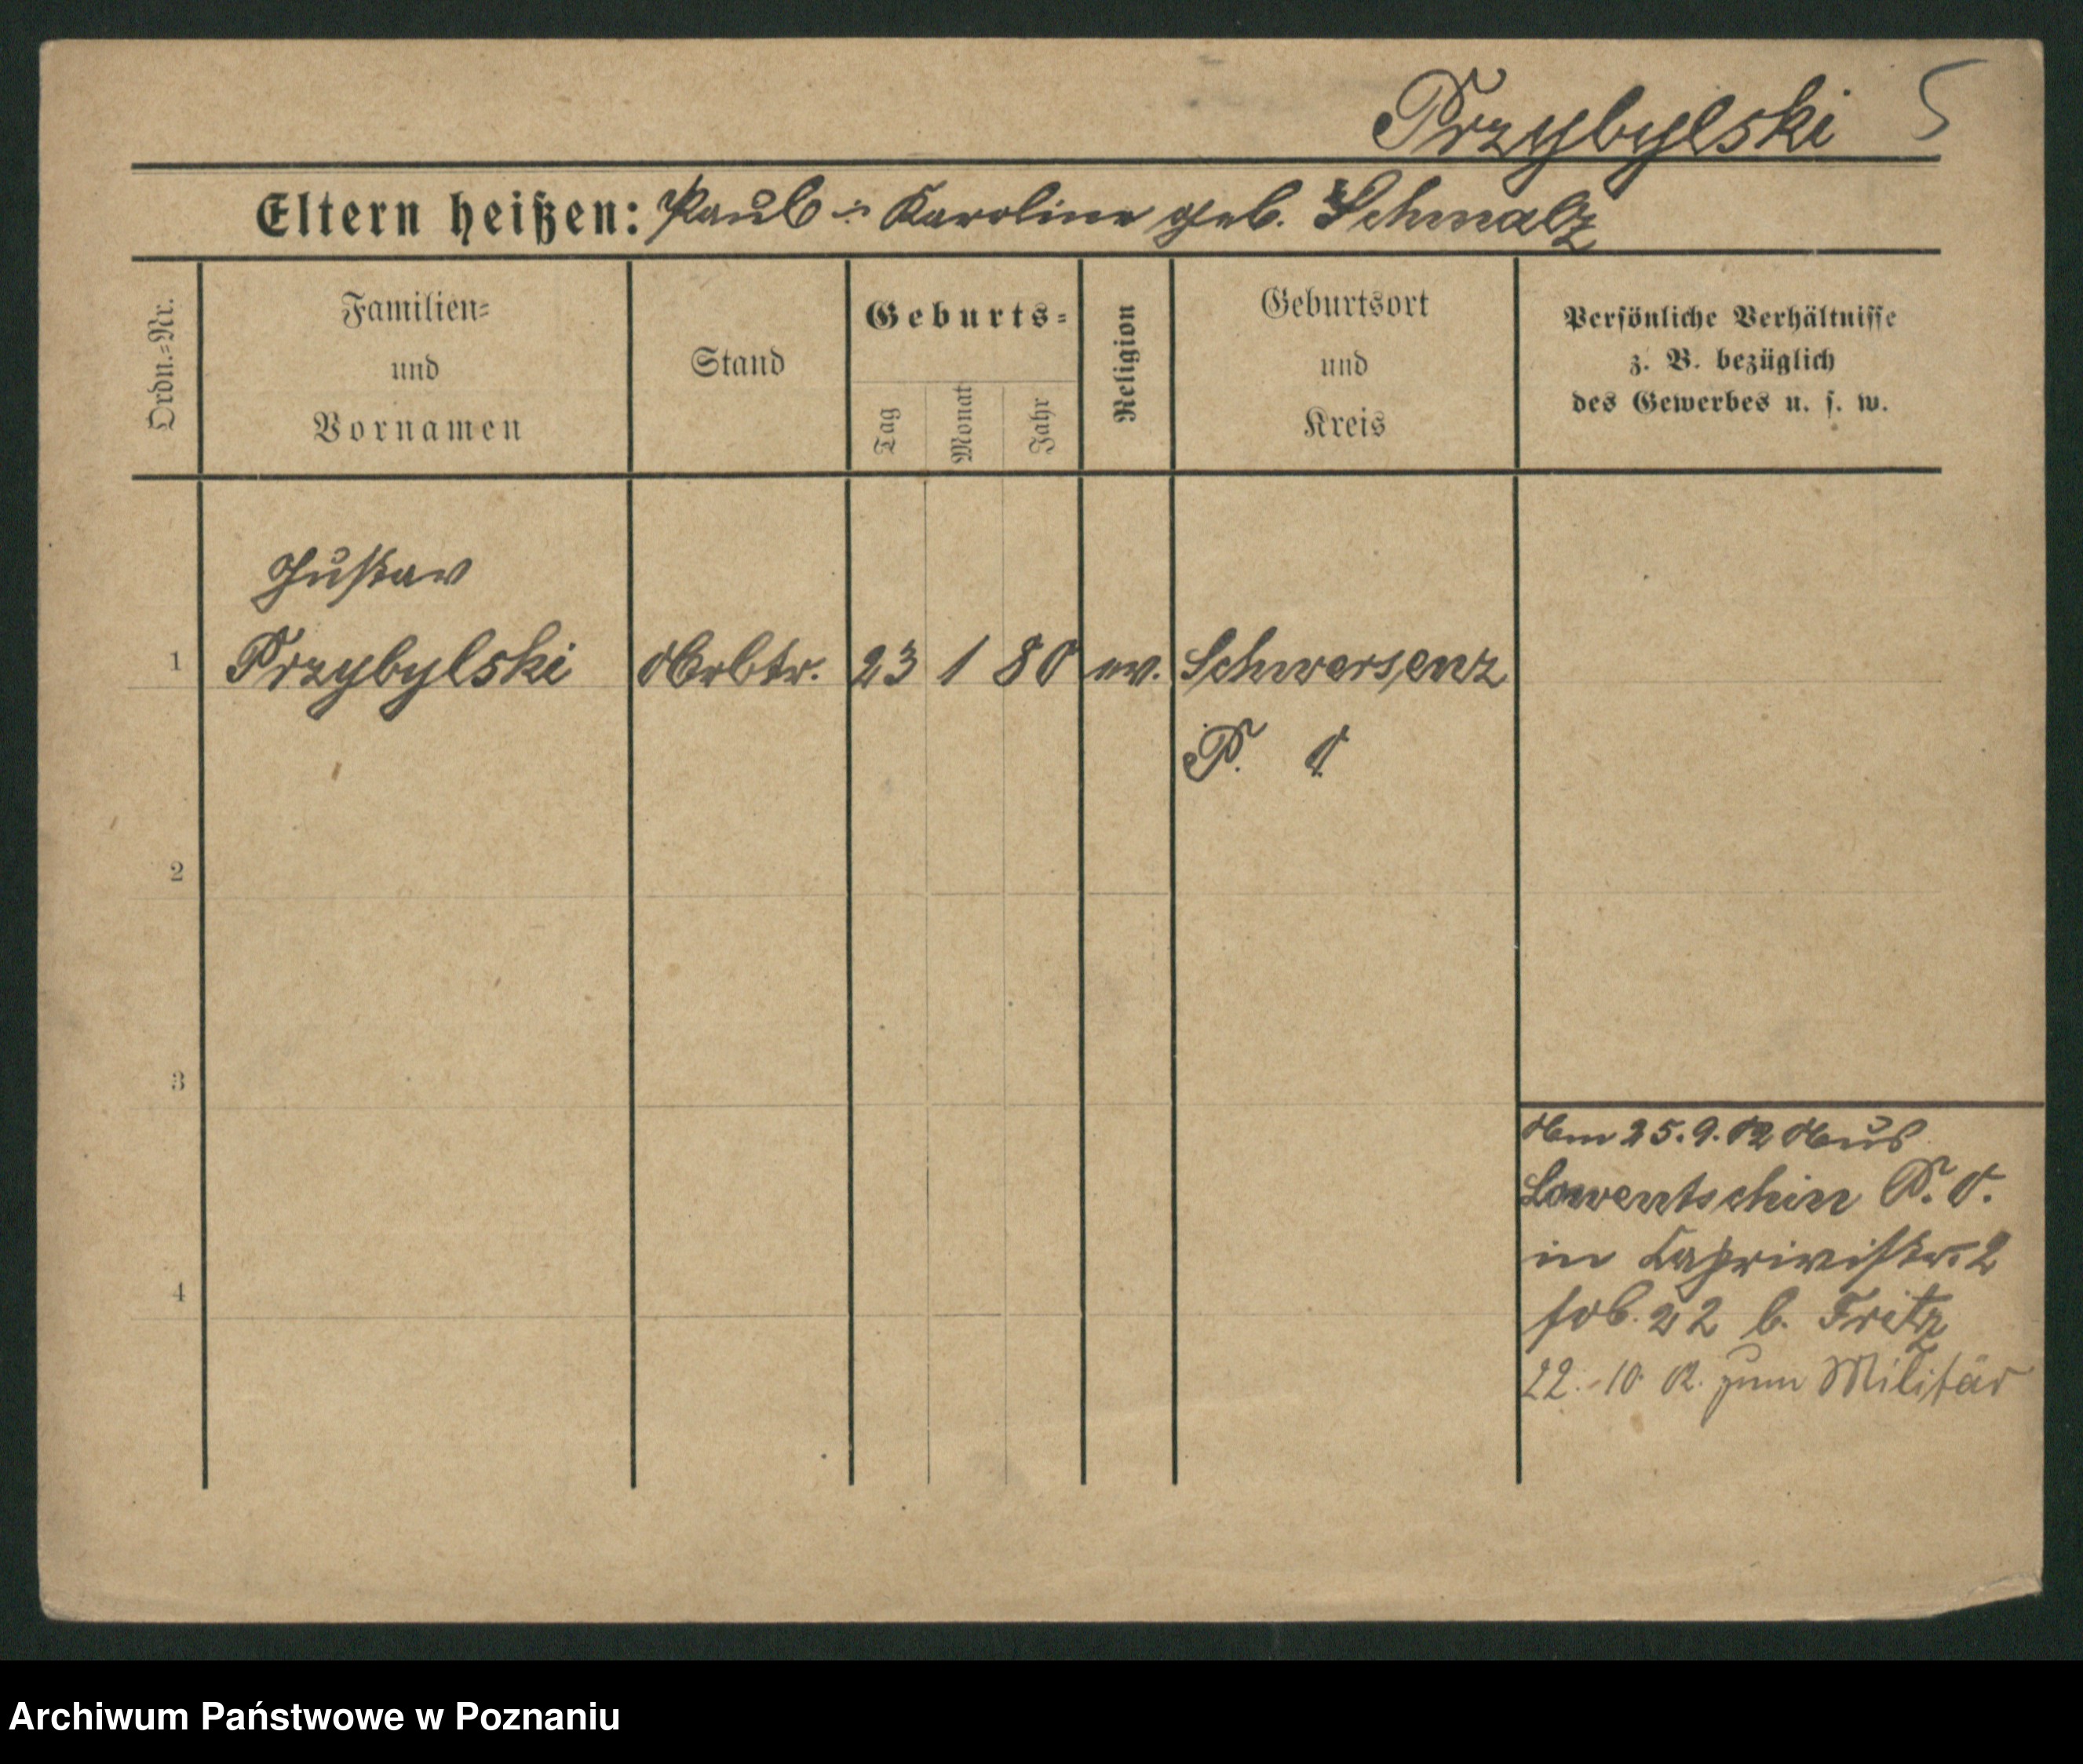 Przybylski 5
Eltern heißen: Paul u. Karoline geb. Schmalz
Ordn.=Nr.
Familien=
und
Vornamen
Stand
Geburts=
Tag
Monat
Jahr
Religion
Geburtsort
und
Kreis
Persönliche Verhältnisse
z. B. bezüglich
des Gewerbes u. s. w.
Gustav
1 Przybylski Arbtr. 23 1 80 ev. Schwersenz
P. O.
2
3
4
Am 25.9.02 aus
Lowentschin P. O.
in Kaprivistr. 2
22 b. Fritz
22.-10. 02. zum Militär
Archiwum Państwowe w Poznaniu